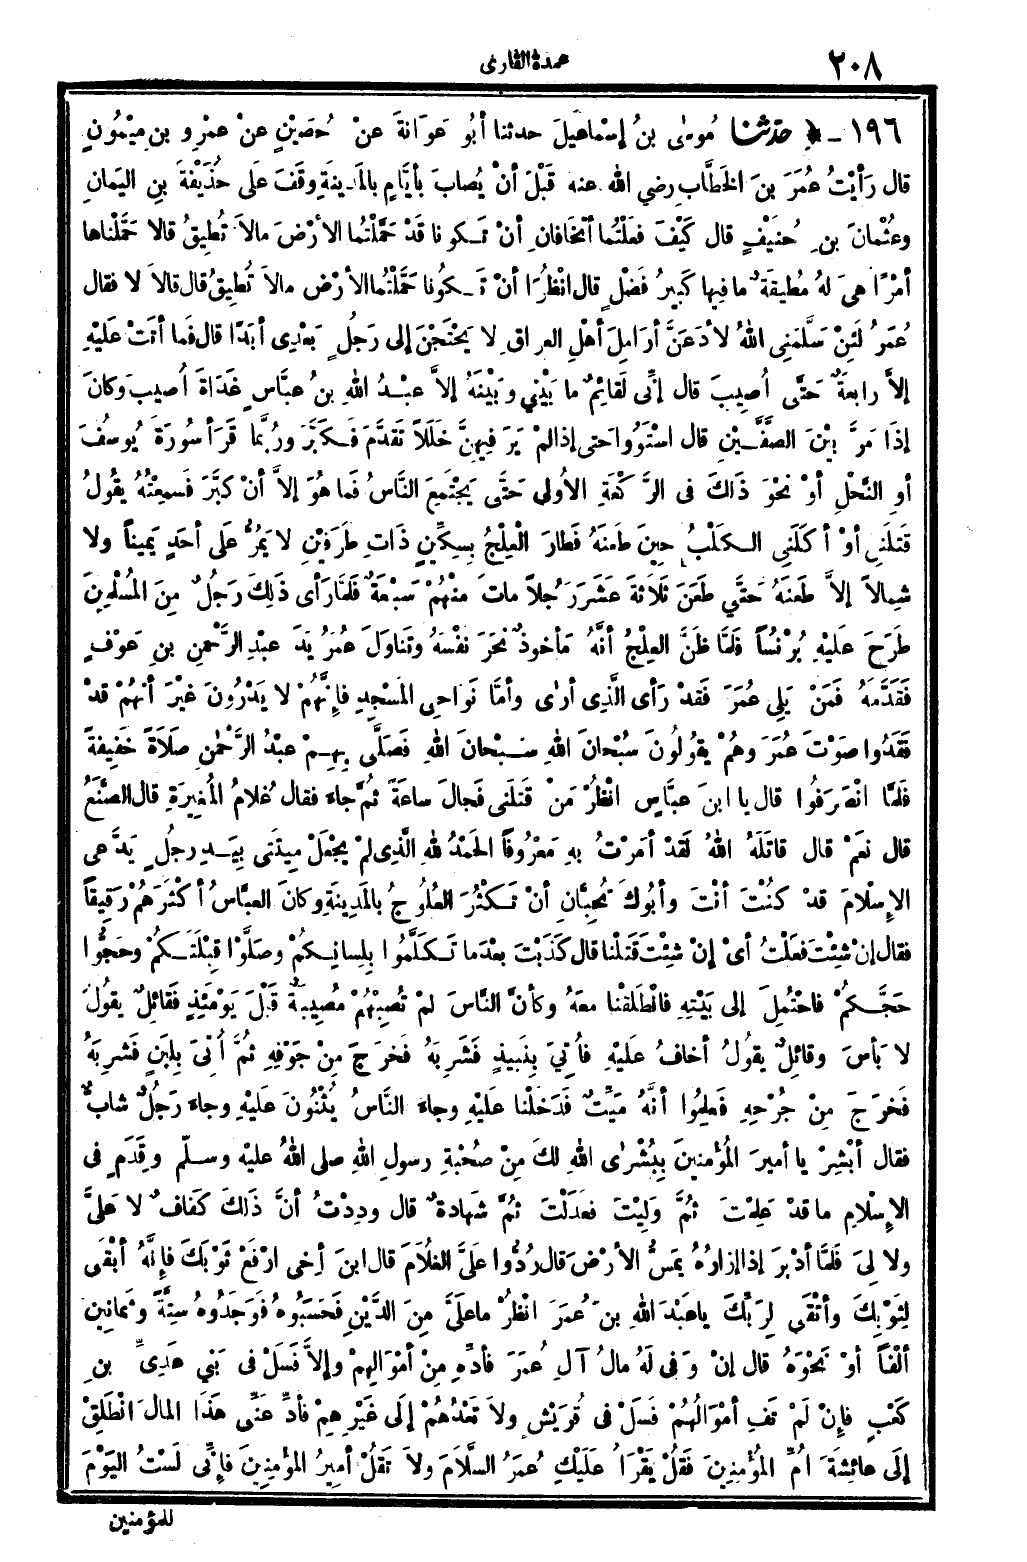 ٢٠٨
عمدة القارى
١٩٦ - ﴿ حَدَّثنا مُوسَى بنُ إسْماعِيلَ حدثنا أبُو عَوَانَةَ عنْ حُصَيْنٍ عنْ عَمْرِو بنِ مَيْمُونٍ
قال رَأيْتُ عُمَرَ بنَ الخَطَّابِ رضي الله عنه قَبْلَ أنْ يُصابَ بأيَّامٍ بالمَدِينةِ وقَفَ علَى حُذَيْفَةَ بنِ اليَمانِ
وعُثْمانَ بنِ حُنَيْفٍ قال كَيْفَ فعَلْتُما أتَخَافانِ أنْ تَكونا قَدْ حَمَّلْتُما الأرْضَ مالاَ تُطِيقُ قالا حَمَّلْناها
أمْرًا هِيَ لهُ مُطيقَةٌ ما فِيها كَبِيرُ فَضْلٍ قال انْظُرَا أنْ تَكُونا حَمَّلْتُما الأرْضَ مالاَ تُطِيقُ قال قالاَ لا فقال
عُمَرُ لَئِنْ سَلَّمَنِي اللهُ لأدَعَنَّ أرَامِلَ أهْلِ العِراقِ لا يَحْتَجْنَ إلى رَجُلٍ بَعْدِي أبَدًا قال فَما أتَتْ علَيْهِ
إلاَّ رابعَةٌ حَتَّى أُصِيبَ قال إنِّي لَقائِمٌ ما بَيْنِي وبَيْنَهُ إلاَّ عبْدُ اللهِ بنُ عبَّاسٍ غَدَاةَ أُصيبَ وكانَ
إذَا مَرَّ بيْنَ الصَّفَّيْنِ قال اسْتَوُوا حتى إذا لمْ يَرَ فِيهِنَّ خَلَلاً تَقَدَّمَ فَكَبَّرَ ورُبَّما قَرَأ سُورَةَ يُوسُفَ
أوِ النَّحْلِ أوْ نحْوَ ذَلِكَ في الرَّكْعَةِ الأُولى حَتَّى يَجْتَمِعَ النَّاسُ فَما هوَ إلاَّ أنْ كبَّرَ فَسمِعْتُهُ يقُولُ
قتَلَنِي أوْ أكَلَنِي الكَلْبُ حِينَ طَعَنَهُ فَطارَ الْعِلْجُ بِسِكِّينٍ ذَاتِ طرَفَيْنِ لا يَمُرُّ علَى أحَدٍ يَمِيناً ولا
شِمالاً إلاَّ طَعنَهُ حَتَّى طَعَنَ ثَلاثَةَ عَشَرَ رَجُلاً ماتَ منْهُمْ سَبْعَةٌ فَلَمَّا رَأى ذَلِكَ رَجُلٌ مِنَ المُسْلِمِينَ
طَرَحَ علَيْهِ بُرْنُساً فَلَمَّا ظَنَّ العِلْجُ أنَّهُ مَأخوذٌ نحَرَ نفْسَهُ وتَناوَلَ عُمَرُ يَدَ عبْدِ الرَّحْمنِ بنِ عَوْفٍ
فقَدَّمَهُ فمَنْ يَلِي عُمَرَ فَقدْ رَأى الَّذِي أرَى وأمَّا نَواحِي المَسْجِدِ فإنَّهُمْ لا يَدْرُونَ غيْرَ أنَّهُمْ قدْ
فقَدُوا صَوْتَ عُمَرَ وهُمْ يقُولُونَ سُبْحانَ اللهِ سُبْحانَ اللهِ فَصَلَّى بِهِمْ عبْدُ الرَّحْمنِ صلاَةً خَفِيفةً
فلَمَّا انْصَرَفُوا قال يا ابنَ عبَّاسٍ انْظُرْ مَنْ قتَلَنِي فَجالَ ساعَةً ثمَّ جاءَ فقال غُلامُ المُغِيرَةِ قال الصَّنَعُ
قال نعَمْ قال قاتَلَهُ اللهُ لَقدْ أمَرْتُ بهِ مَعْرُوفاً الحَمْدُ للهِ الَّذِي لمْ يجْعَلْ مِيتَتِي بِيَدِ رجُلٍ يَدَّعِي
الإِسْلامَ قدْ كنْتَ أنْتَ وأبُوكَ تُحِبَّانِ أنْ تَكْثُرَ العُلُوجُ بالْمَدِينَةِ وكانَ العبَّاسُ أكْثَرَهُمْ رَقِيقاً
فقال إنْ شِئْتَ فعَلْتُ أيْ إنْ شِئْتَ قتَلْنا قال كَذَبْتَ بعْدَما تَكَلَّمُوا بِلِسانِكُمْ وصَلَّوْا قِبْلَتَكُمْ وحَجُّوا
حَجَّكُمْ فاحْتُمِلَ إلى بَيْتِهِ فانْطَلَقْنا معَهُ وكأنَّ النَّاسَ لمْ تُصِبْهُمْ مُصِيبةٌ قَبْلَ يَوْمَئِذٍ فقَائِلٌ يقُولُ
لا بَأسَ وقائِلٌ يقُولُ أخافُ علَيْهِ فأُتِيَ بِنَبِيذٍ فشَرِبَهُ فخَرَجَ مِنْ جَوْفِهِ ثُمَّ أُتِيَ بِلبَنٍ فشَرِبَهُ
فَخرَجَ مِنْ جُرْحِهِ فَعلِمُوا أنَّهُ مَيِّتٌ فدَخَلْنا علَيْهِ وجاءَ النَّاسُ يُثْنُونَ علَيْهِ وجاءَ رَجُلٌ شابٌّ
فقال أبْشِرْ يا أميرَ المُؤْمنِينَ بِبُشْرَى اللهِ لكَ مِنْ صُحْبَةِ رسولِ اللهِ صلى اللهُ علَيْهِ وسلّم وقِدَمٍ في
الإِسْلامِ ما قدْ علِمْتَ ثُمَّ وَلِيتَ فعَدَلْتَ ثُمَّ شَهادَةٌ قال ودِدْتُ أنَّ ذَلِكَ كَفافٌ لا علَيَّ
ولا لِيَ فلَمَّا أدْبرَ إذا إزارُهُ يمَسُّ الأرْضَ قال رُدُّوا علَيَّ الغُلاَمَ قال ابنَ أخِي ارْفَعْ ثوْبَكَ فإنَّهُ أبْقَى
لِثَوْبِكَ وأتْقَى لِرَبِّكَ يا عبْدَ اللهِ بنَ عُمَرَ انْظُرْ ما علَيَّ مِنَ الدَّيْنِ فَحَسَبُوهُ فوَجَدُوهُ سِتَّةً وثمَانِينَ
ألْفاً أوْ نَحْوَهُ قال إنْ وَفى لَهُ مالُ آلِ عُمَرَ فأدِّهِ مِنْ أمْوَالِهِمْ وإلاَّ فسَلْ في بَنِي عَدِيِّ بنِ
كَعْبٍ فإنْ لَمْ تَفِ أمْوَالُهُمْ فسَلْ في قُرَيْشٍ ولاَ تَعْدُهُمْ إلَى غَيْرِهِمْ فأدِّ عَنِّي هَذَا المالَ انْطَلِقْ
إلَى عائِشَةَ أُمِّ المُؤْمِنِينَ فقُلْ يقْرَأُ علَيْكِ عُمَرُ السَّلاَمَ ولاَ تقُلْ أمِيرُ المُؤْمِنِينَ فإنِّي لَسْتُ اليَوْمَ
للمؤمنين